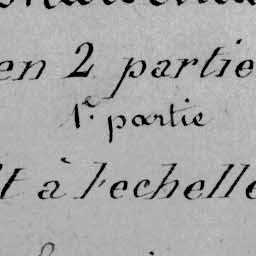 en 2 partie
1e. partie
t à l'echelle